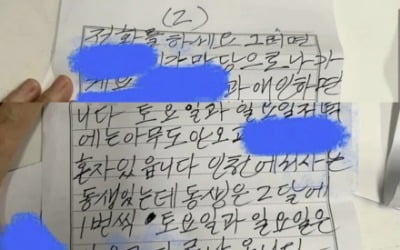 (2)
전화를하세요 그러면
가마당으로나가
게요 과애인하면
니다 토요일과 일요일저녁
에는아무도안오고
혼자있읍니다 인천에서사는
동생있는데 동생은 2달에
1번씩 토요일과 일요일은